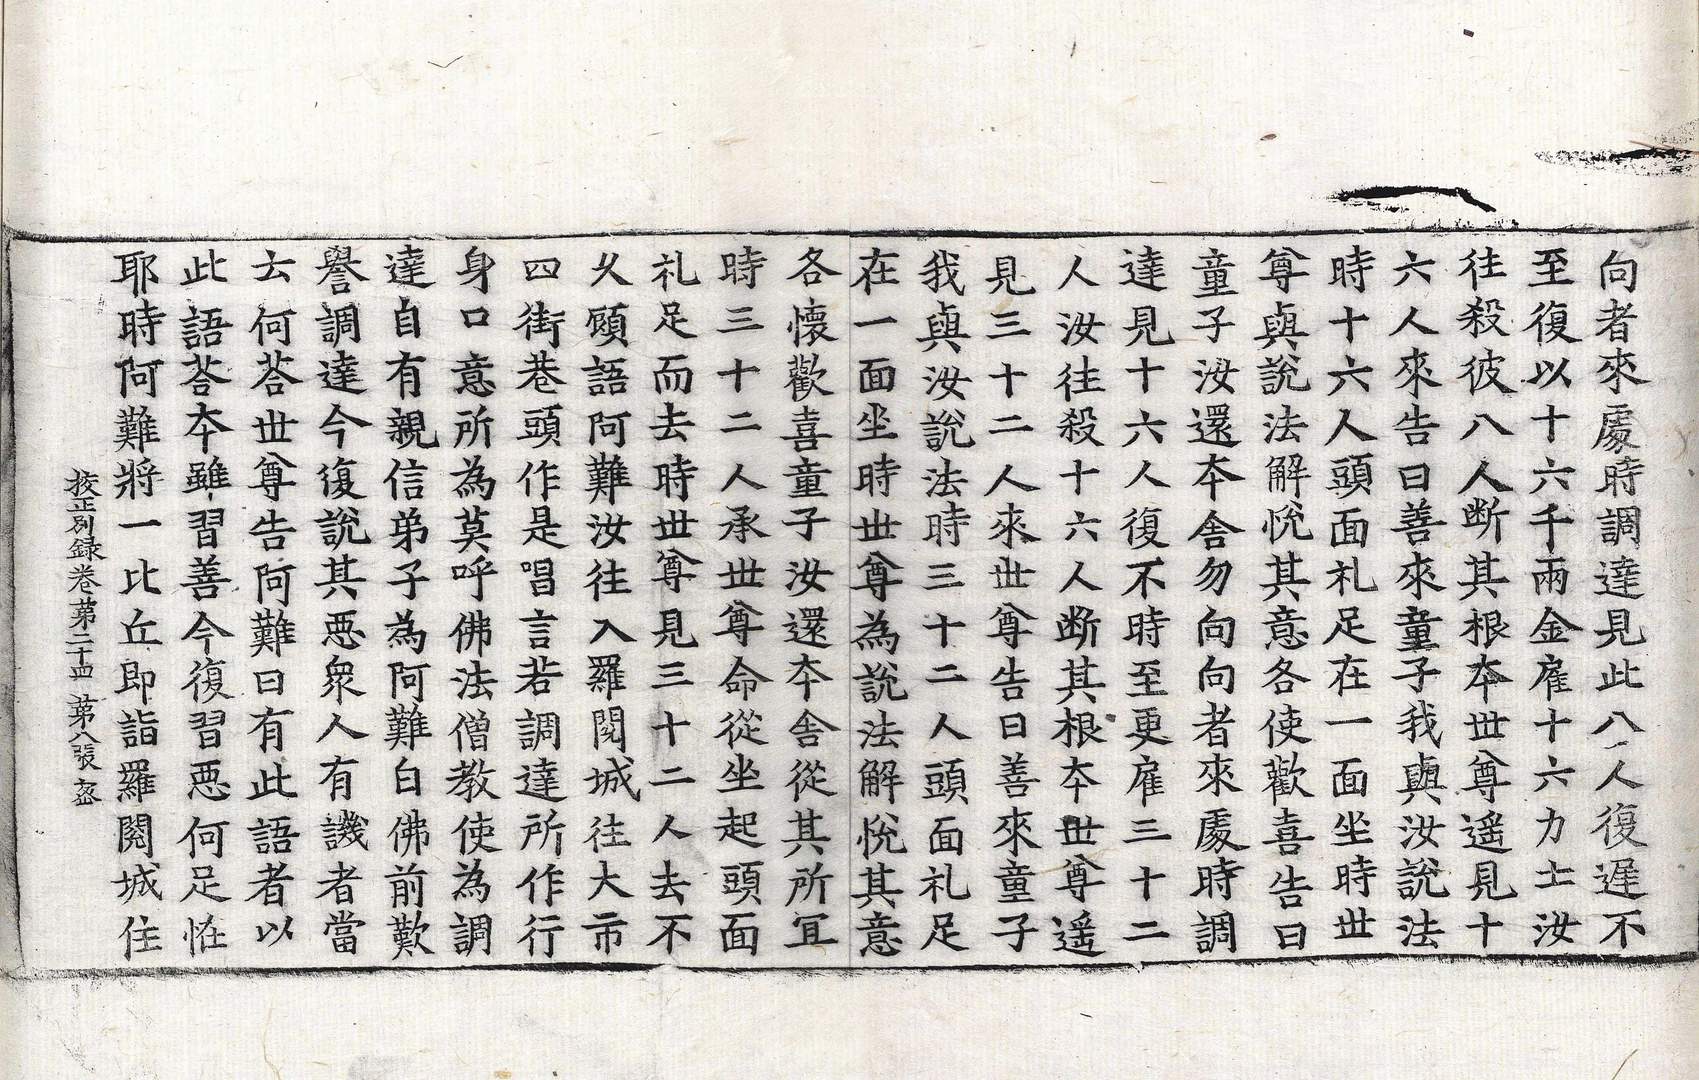 向者來處時調達見此八人復遲不
至復以十六千兩金雇十六力士汝
往殺彼八人断其根夲世尊遥見十
六人來告曰善來童子我與汝說法
時十六人頭面礼足在一面坐時世
尊與說法解恱其意各使歡喜告曰
童子汝還夲舍勿向向者來處時調
達見十六人復不時至更雇三十二
人汝往殺十六人断其根夲世尊遥
見三十二人來世尊告曰善來童子
我與汝說法時三十二人頭面礼足
在一面坐時世尊為說法解恱其意
各懷歡喜童子汝還夲舍從其所冝
時三十二人承世尊命從坐起頭面
礼足而去時世尊見三十二人去不
久顧語阿難汝往入羅閱城往大市
四街巷頭作是唱言若調達所作行
身口意所為莫呼佛法僧教使為調
達自有親信弟子為阿難白佛前歎
譽調達今復說其惡衆人有譏者當
云何荅世尊告阿難曰有此語者以
此語荅夲雖習善今復習惡何足恠
耶時阿難將一比丘即詣羅閱城住
校正别録卷第二十四 第八張 㝘